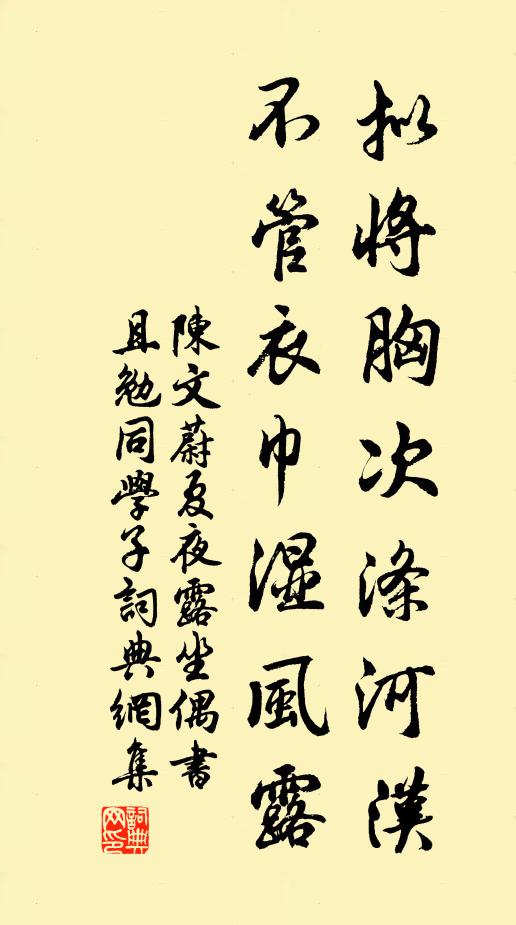 拟將胸次涤河漢
不管衣巾湿風露
陳文蔚夏夜露坐偶書
且勉同學子詞典網集
詞典
网印